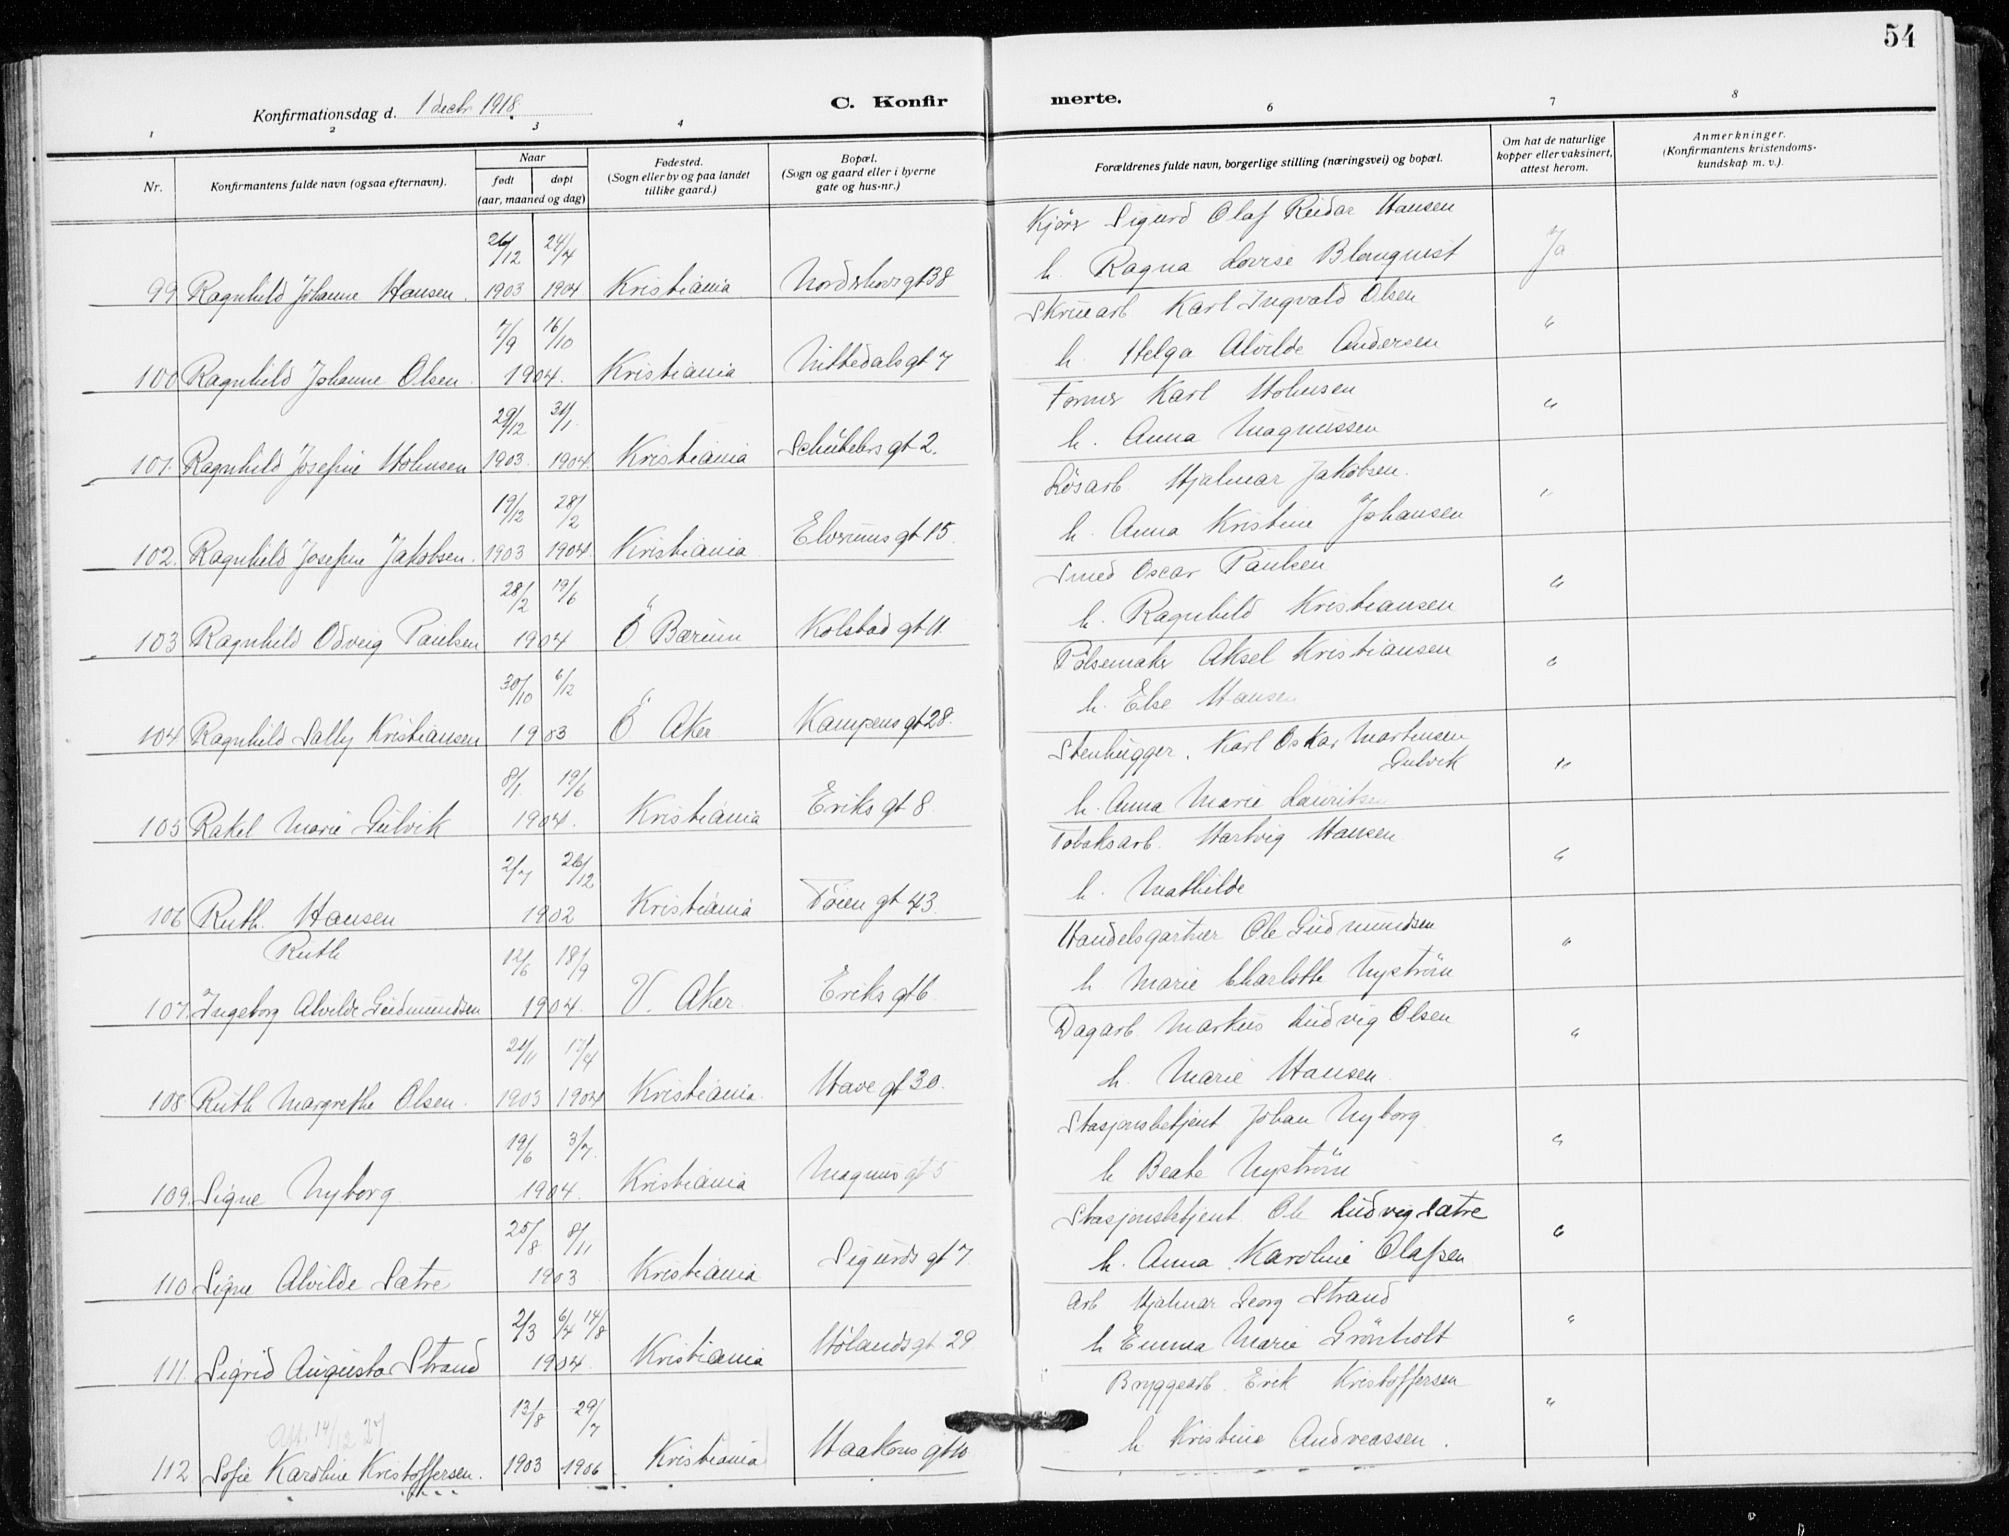 54
Konfirmationsdag d. 1 decbr 1918.
C. Konfirmerte.
1 2 3 4 6 7 8
Nr.
Konfirmantens fulde navn (ogsaa efternavn).
Naar
født døpt
(aar, maaned og dag)
Fødested.
(Sogn eller by og paa landet
tillike gaard.)
Bopæl.
(Sogn og gaard eller i byerne
gate og hus-nr.)
Forældrenes fulde navn, borgerlige stilling (næringsvei) og bopæl.
Om hat de naturlige
kopper eller vaksinert,
attest herom.
Anmerkninger.
(Konfirmantens kristendoms-
kundskap m. v.).
26/12 24/4 Kjører Sigurd Olaf Reidar Hansen
99 Ragnhild Johanne Hansen. 1903 1904 Kristiania Nordahovsgt 38 h. Ragna Lovise Blomquist Ja
7/9 16/10 Skruearb Karl Ingvald Olsen
100 Ragnhild Johanne Olsen. 1904. Kristiania Nittedalsgt 7 h. Helga Alvilde Andersen "
29/12 31/1. Former Karl Holmsen
101. Ragnhild Josefine Holmsen 1903. 1904. Kristiania Schübelersgt 2. h. Anna Magnussen "
19/12 28/2 Løsarb. Hjalmar Jakobsen.
102. Ragnhild Josefine Jakobsen. 1903 1904. Kristiania Elverumsgt 15. h. Anna Kristine Johansen "
28/2 19/6 Smed Oscar Paulsen
103 Ragnhild Odveig Paulsen 1904 Ö Bærum Kolstadgt 11. h. Ragnhild Kristiansen "
30/10 6/12 Pølsemaker Aksel Kristiansen
104 Ragnhild Sally Kristiansen 1903 Ö Aker Kampensgt 28. h. Else Hansen "
8/1. 19/6 Stenhugger. Karl Oskar Martinsen
Gulvik
105 Rakel Marie Gulvik 1904. Kristiania Eriksgt 8. h. Anna Marie Lauritsen "
2/7 26/12 Tobaksarb. Hartvig Hansen.
106 Ruth Hansen 1902 Kristiania Tøiengt 43. h. Mathilde "
Ruth 12/6 18/9 Handelsgartner Ole Gudmundsen
107. Ingeborg Alvilde Gudmundsen 1904. V. Aker. Eriksgt 6. h Marie Charlotte Nystrøm "
21/11 17/4 Dagarb. Markus Ludvig Olsen
108 Ruth Margrethe Olsen. 1903 1904 Kristiania. Havegt 30. h. Marie Hansen "
19/6 3/7. Stasjonsbetjent Johan Nyborg
109. Signe Nyborg 1904. Kristiania Magnusgt 5 h Beate Nystrøm "
25/8 8/11 Stasjonsbetjent. Ole Ludvig Sætre
110 Signe Alvilde Sætre 1903 Kristiania Sigurdsgt 7. h. Anna Karoline Olafsen "
2/3 6/4 14/8 Arb Hjalmar Georg Strand
111. Sigrid Augusta Strand 1904. Kristiania Hølandsgt. 29 h Emma Marie Grönholt "
Att. 14/12 27 13/8 29/7 Bryggearb. Erik Kristoffersen
112 Sofie Karoline Kristoffersen. 1903 1906 Kristiania Haakonsgt 10. h Kristine Andreassen. "